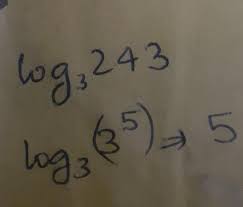 log₃243
log₃(3⁵) ⇒ 5